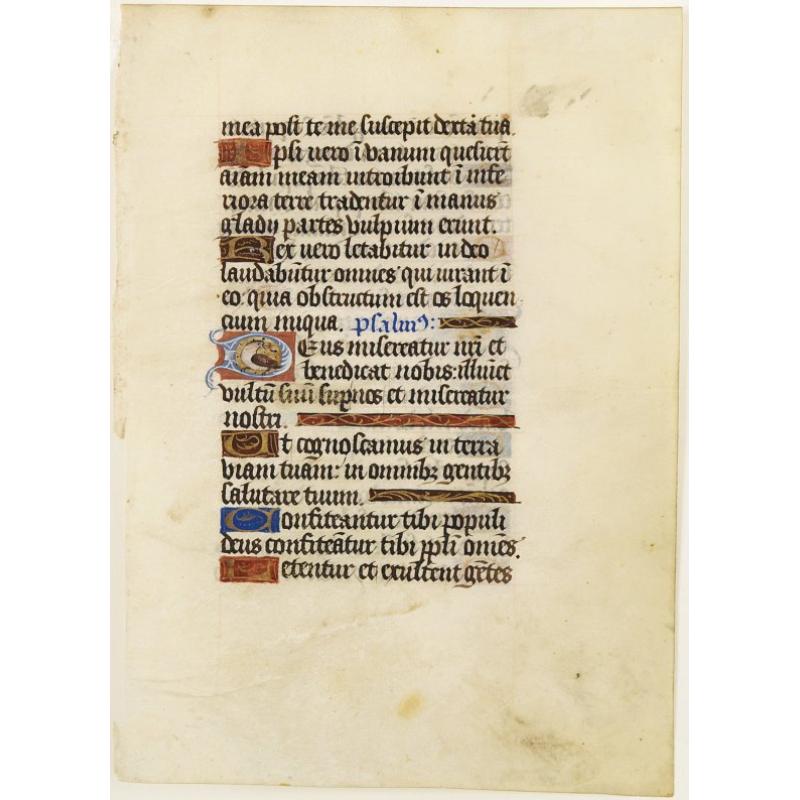 mea post te me suscepit dextã tua.
Ipsi uero ĩ vanum quesiert̃
aĩam meam introibunt ĩ infe
riora terre tradentur ĩ manus
gladij partes vulpium erunt.
Rex uero letabitur in deo
laudabũtur omnes qui iurant ĩ
eo quia obstructum est os loquen
cium iniqua. psalmꝰ:
Deus misereatur nr̃i et
benedicat nobis: illuĩet
vultũ suũ sup nos et misereatur
nostri.
Ut cognoscamus in terra
viam tuam: in omnibꝫ gentibꝫ
salutare tuum.
Confiteantur tibi populi
deus confiteãtur tibi ppl̃i omẽs.
Letentur et exultent gẽtes